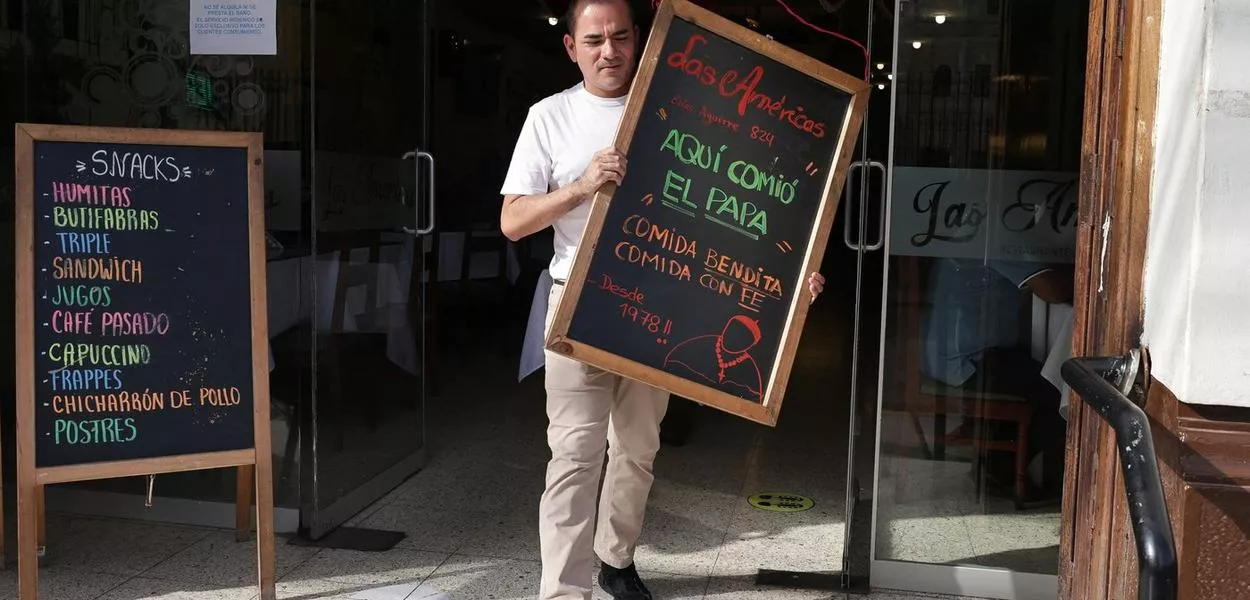 NO SE ALQUILA NI SE
PRESTA EL BAÑO.
EL SERVICIO HIGIÉNICO ES
SOLO EXCLUSIVO PARA LOS
CLIENTES CONSUMIENTO.
SNACKS
- HUMITAS
- BUTIFABRAS
- TRIPLE
- SANDWICH
- JUGOS
- CAFÉ PASADO
- CAPUCCINO
- FRAPPES
- CHICHARRÓN DE POLLO
- POSTRES
Las Américas
Elías Aguirre 824
AQUÍ COMIÓ
EL PAPA
COMIDA BENDITA
COMIDA CON FE
- Desde
1978!!
Las Am